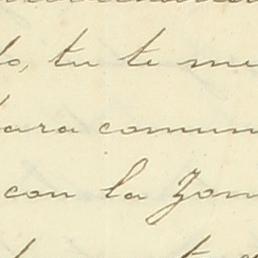 lo, tu te me
para comun
con la Zon